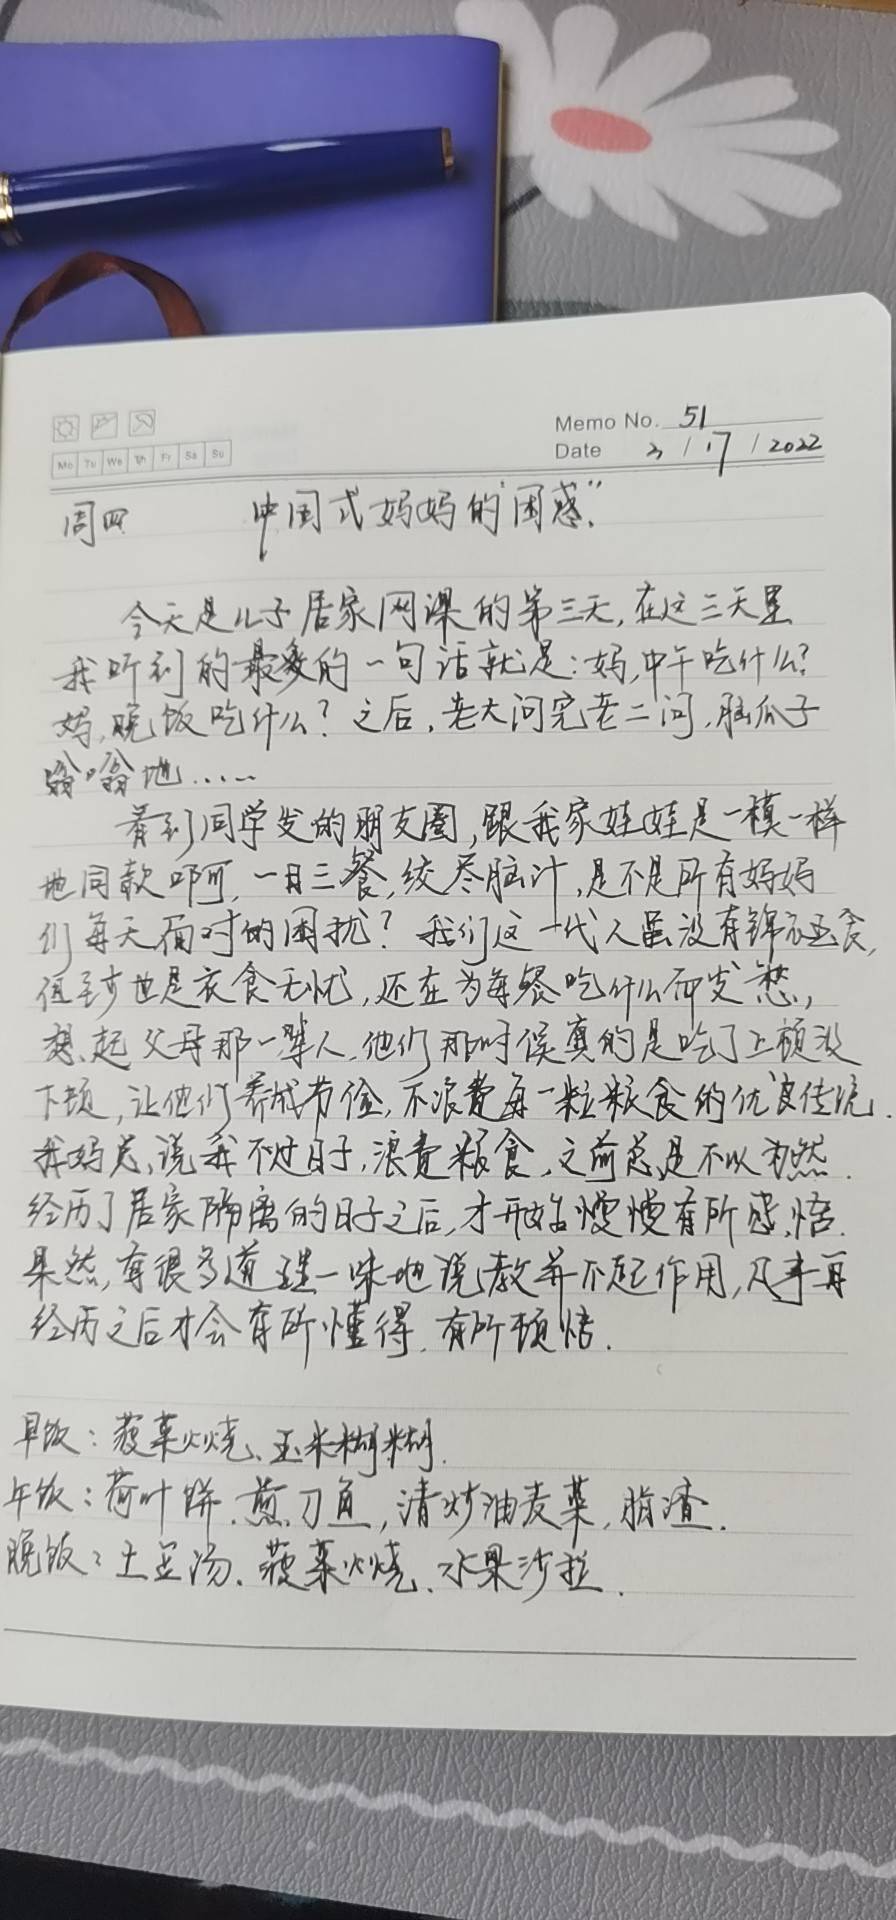 Memo No. 51
Mo Tu We Th Fr Sa Su
Date 3 / 17 / 2022
周四 中国式妈妈的"困惑"
今天是儿子居家网课的第三天,在这三天里
我听到的最多的一句话就是:妈,中午吃什么?
妈,晚饭吃什么?之后,老大问完老二问,脑瓜子
嗡嗡地……
看到同学发的朋友圈,跟我家娃娃是一模一样
地同款啊,一日三餐,绞尽脑汁,是不是所有妈妈
们每天面对的困扰?我们这一代人虽没有锦衣玉食,
但至少也是衣食无忧,还在为每餐吃什么而发愁,
想起父母那一辈人,他们那时候真的是吃了上顿没
下顿,让他们养成节俭,不浪费每一粒粮食的优良传统.
我妈总说我不过日子,浪费粮食,之前总是不以为然.
经历了居家隔离的日子之后,才开始慢慢有所感悟.
果然,有很多道理一味地说教并不起作用,凡事再
经历之后才会有所懂得.有所顿悟.
早饭:菠菜火烧、玉米糊糊.
午饭:荷叶饼.煎刀鱼,清炒油麦菜,脂渣.
晚饭:土豆汤.菠菜火烧.水果沙拉.